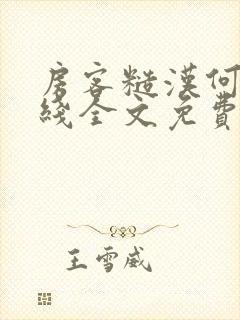 房客糙漢何
綫全文免費
王雪威